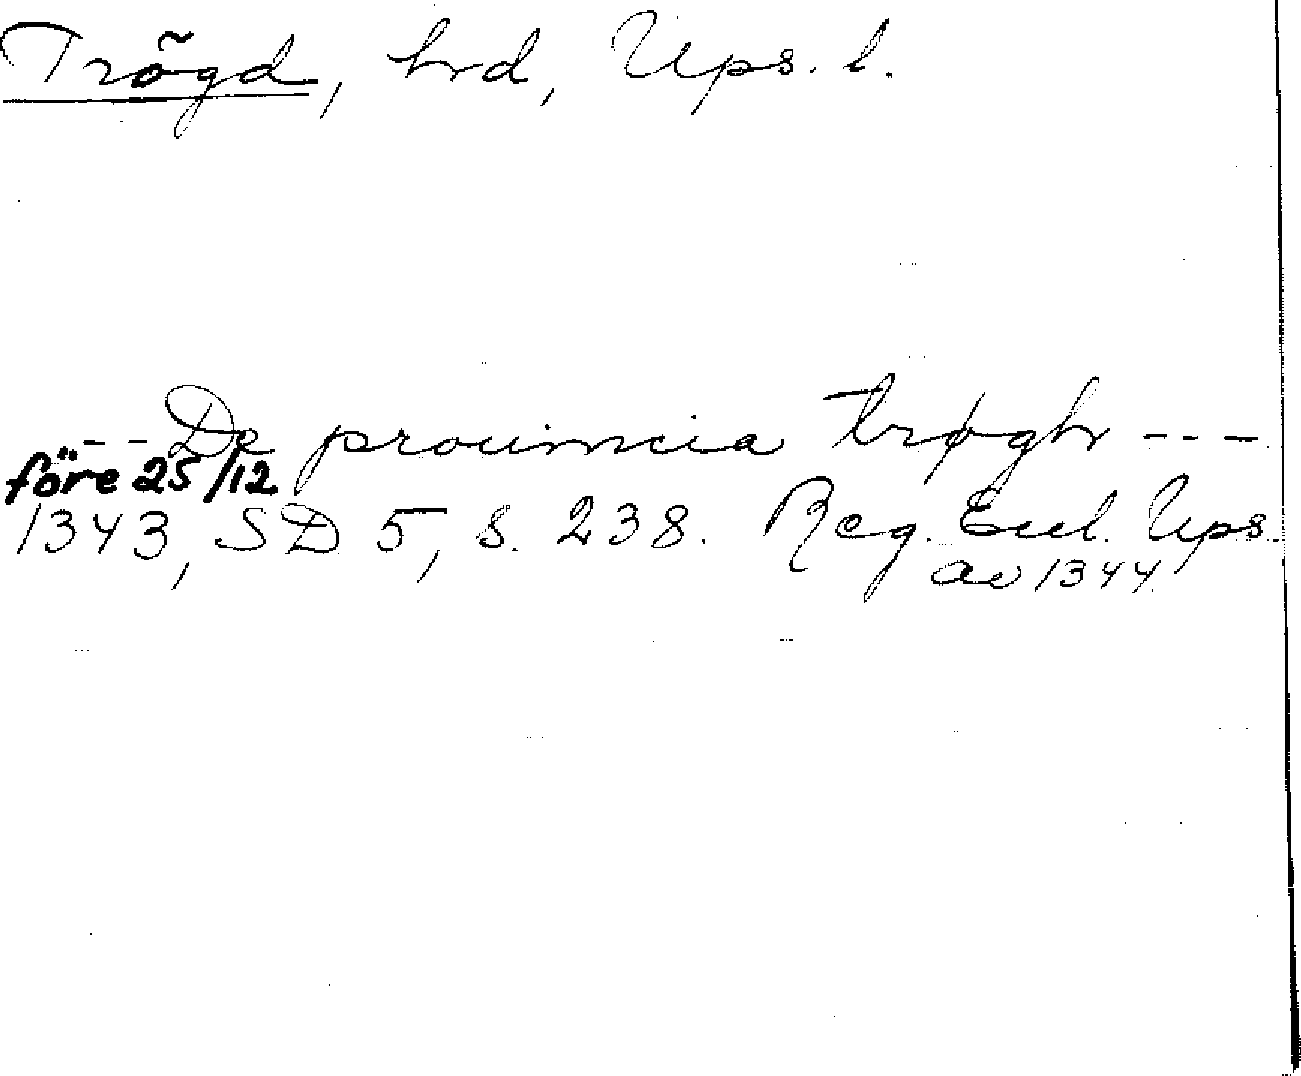 Trögd, hrd, Ups. l.
- - De prouincia trøgh - - -
före 25/12
1343, SD 5, s. 238. Reg. Eccl. Ups.
av 1344.